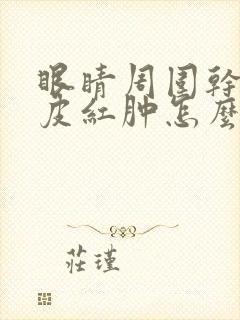 眼睛周围幹
皮红肿怎麽
莊瑾